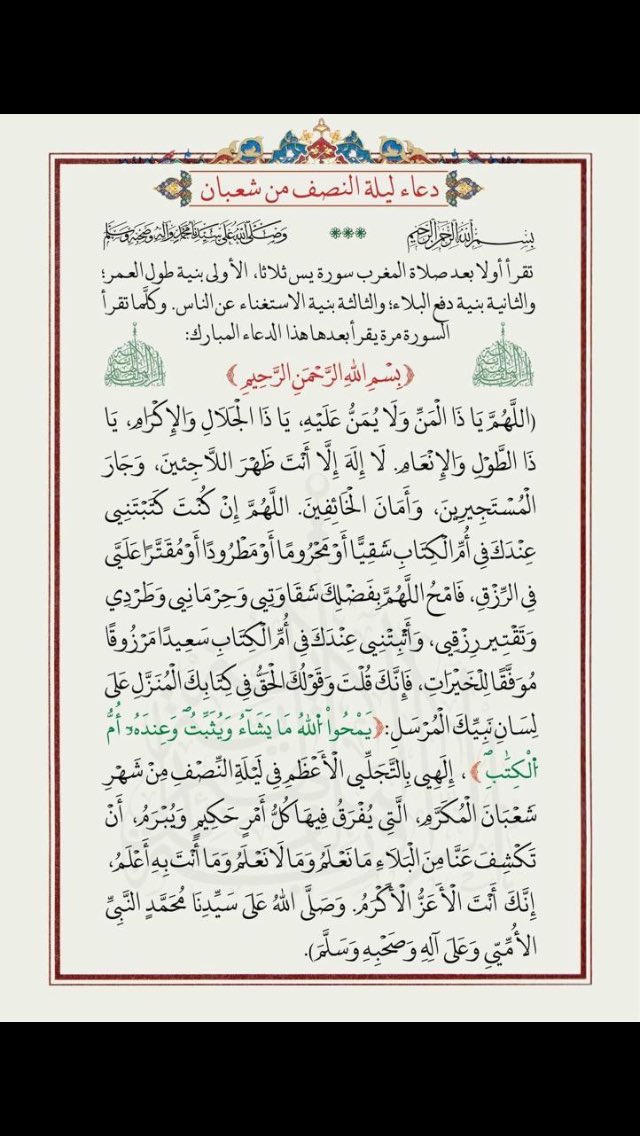 دعاء ليلة النصف من شعبان
بِسْمِ اللهِ الرَّحْمَنِ الرَّحِيمِ *** وَصَلَّى اللهُ عَلَى سَيِّدِنَا مُحَمَّدٍ وَآلِهِ وَصَحْبِهِ وَسَلَّمَ
تقرأ أولا بعد صلاة المغرب سورة يس ثلاثا، الأولى بنية طول العمر؛
والثانية بنية دفع البلاء؛ والثالثة بنية الاستغناء عن الناس. وكلَّما تقرأ
السورة مرة يقرأ بعدها هذا الدعاء المبارك:
﴿بِسْمِ اللهِ الرَّحْمَنِ الرَّحِيمِ﴾
(اللَّهُمَّ يَا ذَا الْمَنِّ وَلَا يُمَنُّ عَلَيْهِ، يَا ذَا الْجَلَالِ وَالإِكْرَامِ، يَا
ذَا الطَّوْلِ وَالإِنْعَامِ. لَا إِلَهَ إِلَّا أَنْتَ ظَهْرَ اللَّاجِئينَ، وَجَارَ
الْمُسْتَجِيرِينَ، وَأَمَانَ الْخَائِفِينَ. اللَّهُمَّ إِنْ كُنْتَ كَتَبْتَنِي
عِنْدَكَ فِي أُمِّ الْكِتَابِ شَقِيًّا أَوْ مَحْرُومًا أَوْ مَطْرُودًا أَوْ مُقَتَّرًا عَلَيَّ
فِي الرِّزْقِ، فَامْحُ اللَّهُمَّ بِفَضْلِكَ شَقَاوَتِي وَحِرْمَانِي وَطَرْدِي
وَتَقْتِيرَ رِزْقِي، وَأَثْبِتْنِي عِنْدَكَ فِي أُمِّ الْكِتَابِ سَعِيدًا مَرْزُوقًا
مُوَفَّقًا لِلْخَيْرَاتِ، فَإِنَّكَ قُلْتَ وَقَوْلُكَ الْحَقُّ فِي كِتَابِكَ الْمُنَزَّلِ عَلَى
لِسَانِ نَبِيِّكَ الْمُرْسَلِ: ﴿يَمْحُواْ اللَّهُ مَا يَشَآءُ وَيُثْبِتُۖ وَعِندَهُۥٓ أُمُّ
ٱلْكِتَٰبِ﴾، إِلَهِي بِالتَّجَلِّي الْأَعْظَمِ فِي لَيْلَةِ النِّصْفِ مِنْ شَهْرِ
شَعْبَانَ الْمُكَرَّمِ، الَّتِي يُفْرَقُ فِيهَا كُلُّ أَمْرٍ حَكِيمٍ وَيُبْرَمُ، أَنْ
تَكْشِفَ عَنَّا مِنَ الْبَلَاءِ مَا نَعْلَمُ وَمَا لَا نَعْلَمُ وَمَا أَنْتَ بِهِ أَعْلَمُ،
إِنَّكَ أَنْتَ الْأَعَزُّ الْأَكْرَمُ. وَصَلَّى اللهُ عَلَى سَيِّدِنَا مُحَمَّدٍ النَّبِيِّ
الأُمِّيِّ وَعَلَى آلِهِ وَصَحْبِهِ وَسَلَّمَ).